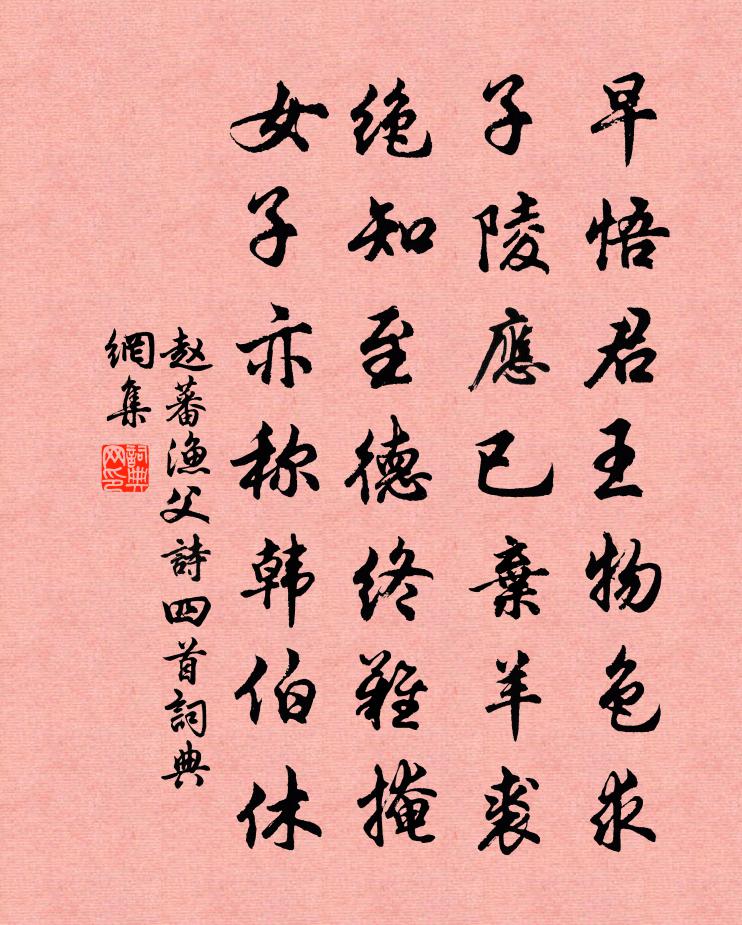 早悟君王物色求
子陵應已棄羊裘
绝知至德终難掩
女子亦称韩伯休
赵蕃漁父詩四首詞典
網集
詞典
网印